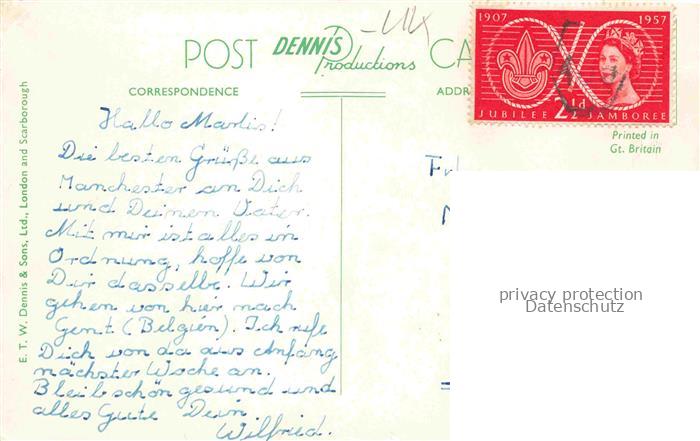 1907 1957
2½d
JUBILEE JAMBOREE
POST
DENNIS
Productions
CORRESPONDENCE
ADDR
Printed in
Gt. Britain
E. T. W. Dennis & Sons, Ltd., London and Scarborough
Hallo Marlis!
Die besten Grüße aus
Manchester an Dich
und Deinen Vater.
Mit mir ist alles in
Ordnung, hoffe von
Dir dasselbe. Wir
gehen von hier nach
Gent (Belgien). Ich rufe
Dich von da aus Anfang
nächster Woche an.
Bleib schön gesund und
alles Gute Dein
Wilfried.
privacy protection
Datenschutz